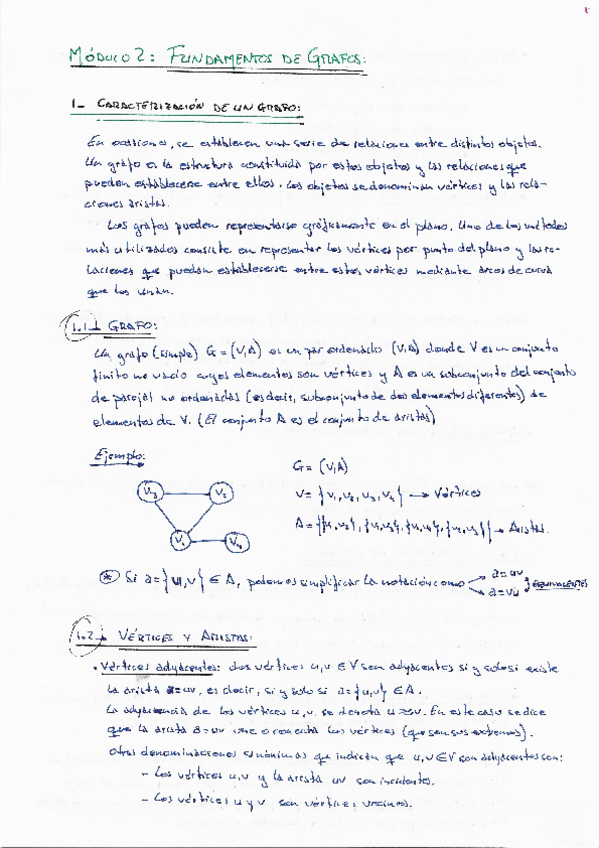 MÓDULO 2: FUNDAMENTOS DE GRAFOS:
1- CARACTERIZACIÓN DE UN GRAFO:
En ocasiones, se establecen una serie de relaciones entre distintos objetos.
Un grafo es la estructura constituida por estos objetos y las relaciones que
puedan establecerse entre ellos. Los objetos se denominan vértices y las rela-
ciones aristas.
Los grafos pueden representarse gráficamente en el plano. Uno de los métodos
más utilizados consiste en representar los vértices por punto del plano y las re-
laciones que puedan establecerse entre estos vértices mediante arcos de curva
que los unan.
1.1 GRAFO:
Un grafo (simple) G = (V,A) es un par ordenado (V,A) donde V es un conjunto
finito no vacío cuyos elementos son vértices y A es un subconjunto del conjunto
de parejas no ordenadas (es decir, subconjunto de dos elementos diferentes) de
elementos de V. (El conjunto A es el conjunto de aristas)
Ejemplo:
G = (V,A)
V = {v₁, v₂, v₃, v₄} → Vértices
A = {{v₁,v₂}, {v₁,v₃}, {v₁,v₄}, {v₂,v₃}} → Aristas.
V₃ V₂
V₁ V₄
* Si a = {u,v} ∈ A, podemos simplificar la notación como a = uv
a = vu } EQUIVALENTES
1.2 VÉRTICES Y ARISTAS:
• Vértices adyacentes: dos vértices u,v ∈ V son adyacentes si y solo si existe
la arista a = uv, es decir, si y solo si a = {u,v} ∈ A.
La adyacencia de los vértices u,v. se denota u ≈ v. En este caso se dice
que la arista a = uv une o conecta los vértices (que son sus extremos).
Otras denominaciones sinónimas que indican que u,v ∈ V son adyacentes son:
- Los vértices u,v y la arista uv son incidentes.
- Los vértices u y v son vértices vecinos.